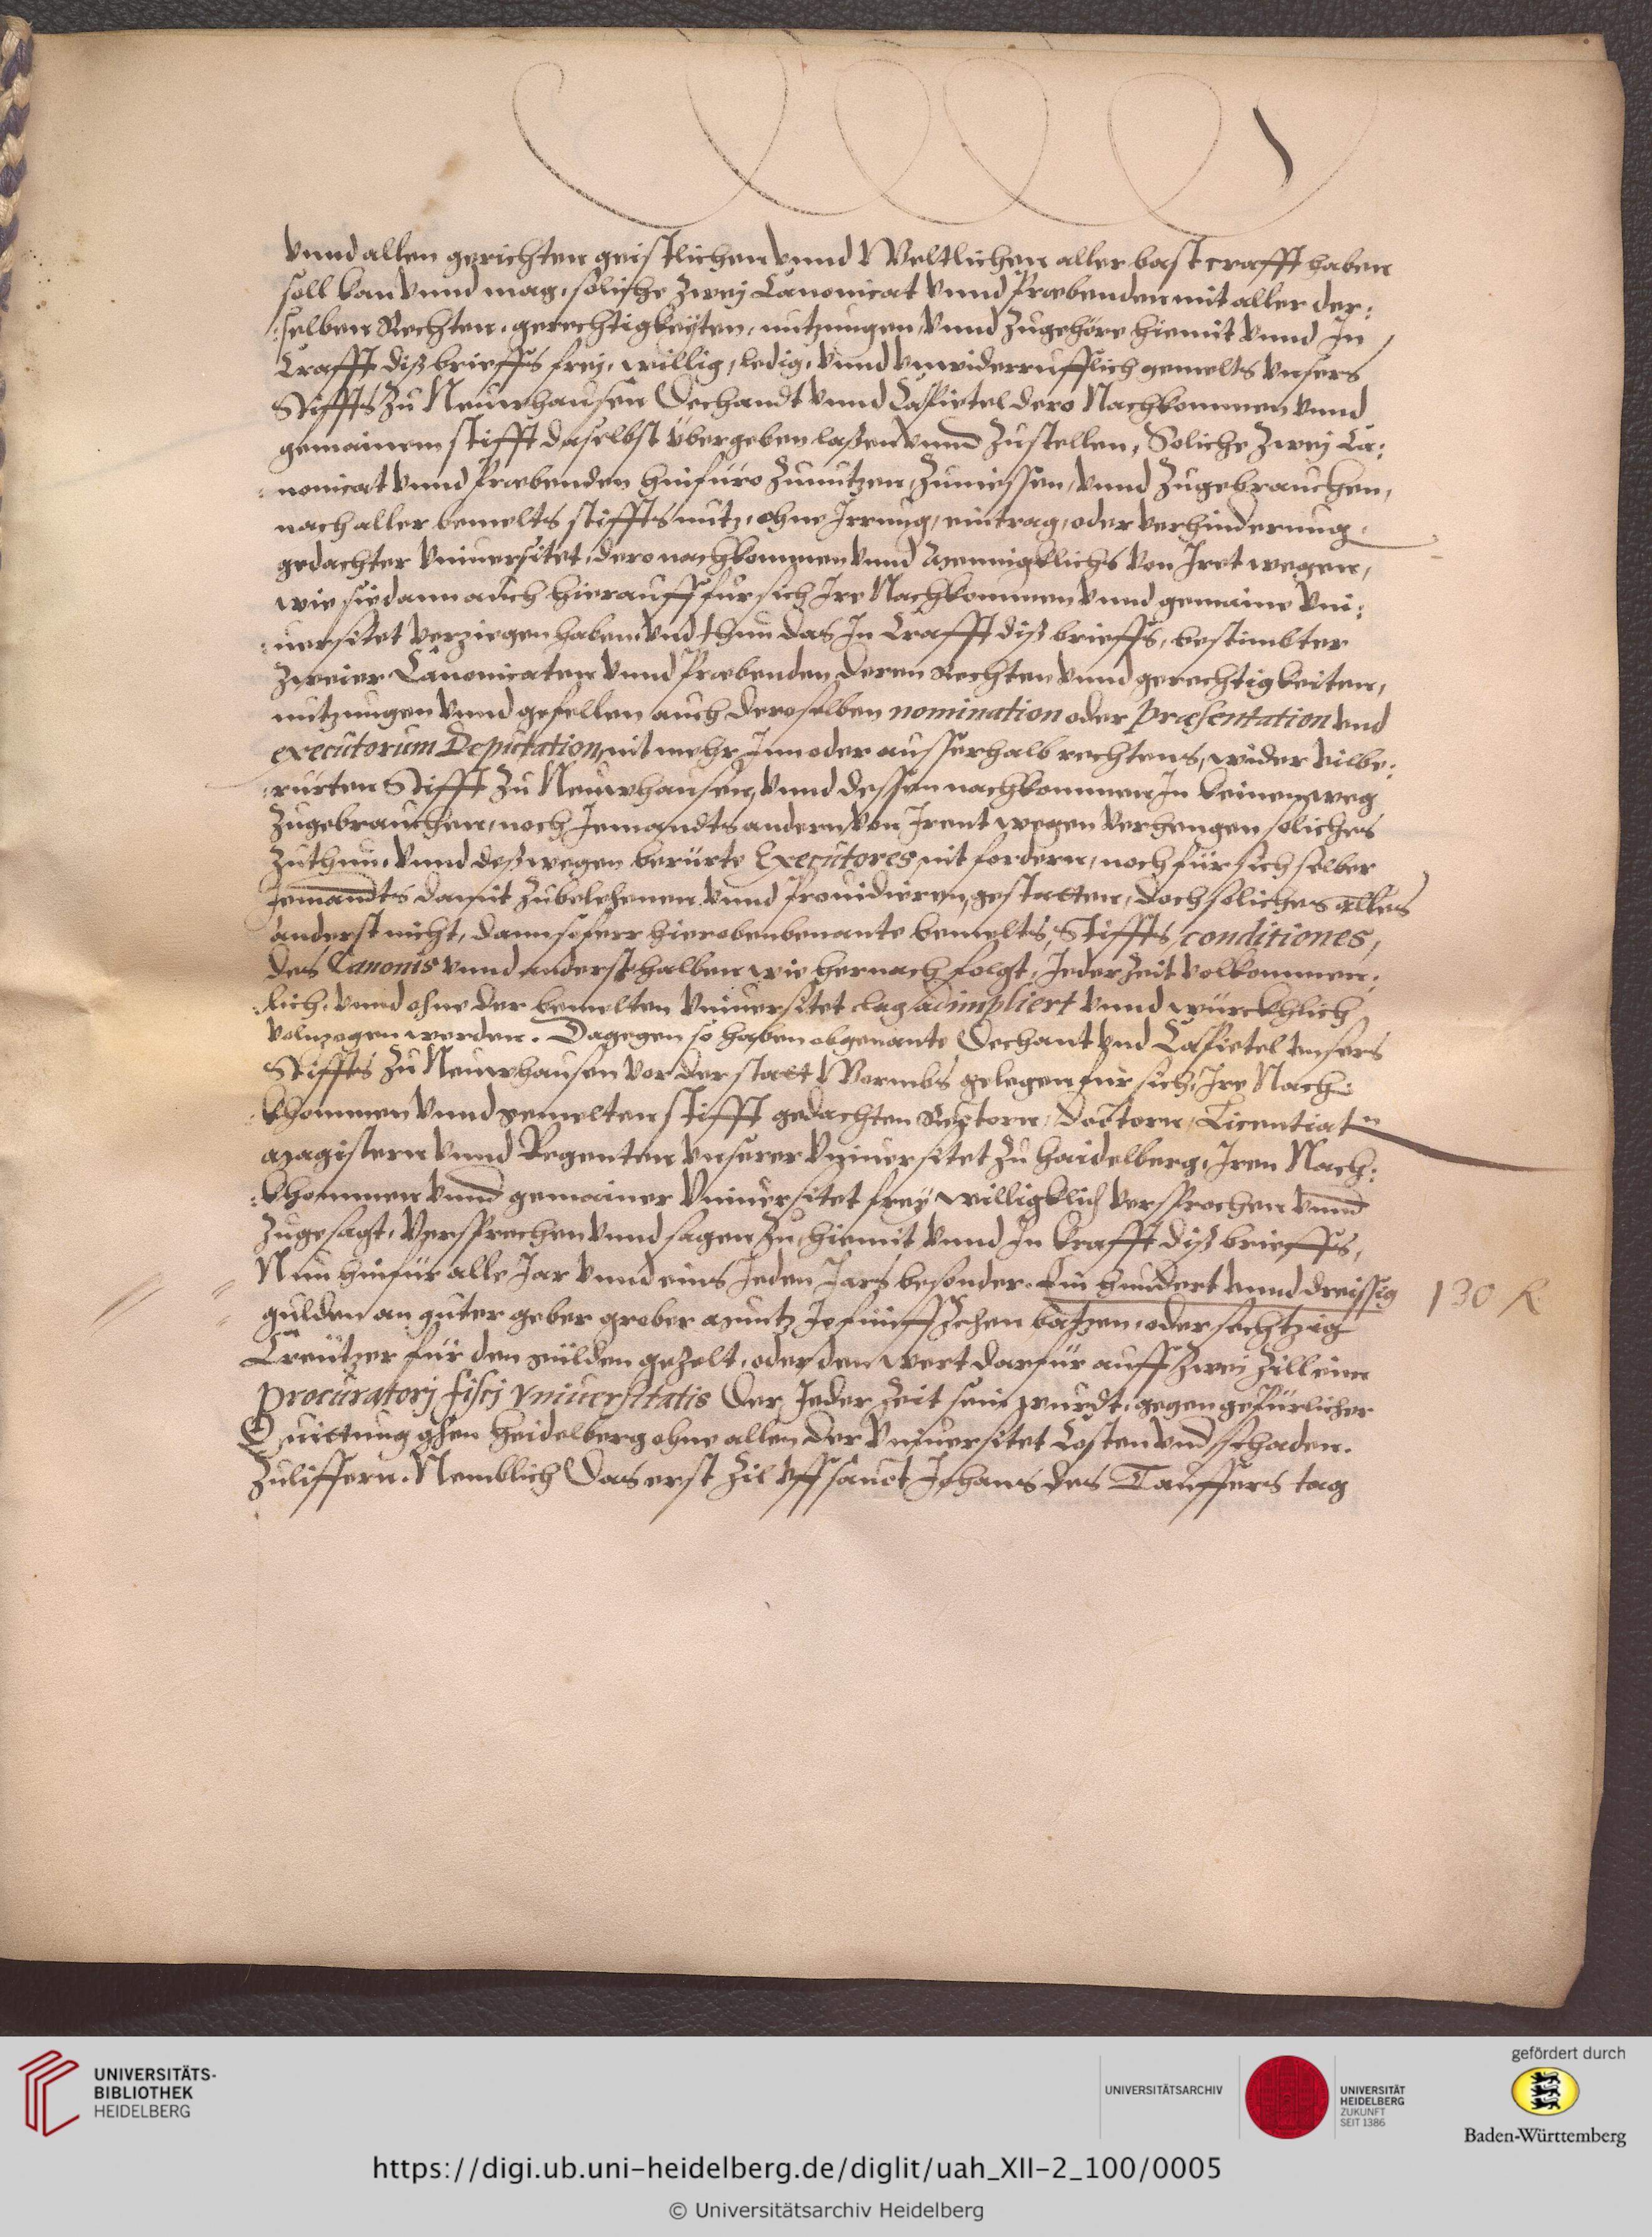 vnnd allen gerichten geistlichen vnnd Weltlichen aller bast crafft haben
soll kan vnnd mag, soliche zwej Canonicat vnnd Præbenden mit aller der:
:selben Rechten, gerechtigkeyten, nutzungen, vnnd zugehöre hiemit vnnd In
Crafft diß brieffs frej, willig, ledig, vnnd vnwiderrufflich gemelts vnsers
Stiffts zu Neuwhausen Dechandt vnnd Cappittel dero Nachkommen vnnd
gemainem stifft daselbst übergeben laßen vnnd zustellen, Soliche zwej Ca:
:nonicat vnnd Præbenden hinfüro zunutzen, zuniessen, vnnd zugebrauchen,
nach aller bemelts stiffts nutz, ohne Irrung, eintrag, oder verhinderung
gedachter vniuersitet, dero nachkommen vnnd Menigklichs von Iret wegen,
wie sie dann auch hierauff für sich Ire Nachkommen vnnd gemaine vni:
:uersitet verziegen haben vnd thun das In Crafft diß brieffs, bestimbter
zweier Canonicaten vnnd Præbenden deren Rechten vnnd gerechtigkeiten,
nutzungen vnnd gefellen auch deroselben nomination oder Præsentation vnd
executorium Deputation, nit mehr Inn oder ausserhalb rechtens, wider vilbe:
:rürten Stifft zu Neuwhausen, vnnd dessen nachkommen In keinen weg
zugebrauchen, noch Jemandts andern von Irent wegen verhengen soliches
zuthun, vnnd deßwegen berürte Executores nit fordern, noch für sich selber
Jemandts damit zubelehenen vnnd prouidieren, gestatten, doch soliches alles
anderst nicht, dann soferr hierobenbenante bemelts Stiffts conditiones,
des Canonis vnnd anderst halben wie hernach folgt, Jeder zeit volkommen:
:lich, vnnd ohne der bemelten vniuersitet clag adimpliert vnnd würckhlich
volnzogen werden. Dagegen so haben obgenante Dechant vnd Cappittel vnsers
Stiffts zu Neuwhausen vor der statt Wormbs gelegen für sich, Ire Nach:
:khommen vnnd gemelten stifft gedachten Rectorn, Doctorn, Licentiat
Magistern vnnd Regenten vnserer vniuersitet zu Haidelberg, Iren Nach:
:khommen vnnd gemainer vniuersitet frey willigklich versprochen vnnd
zugesagt, versprechen vnnd sagen zu, hiemit vnnd In krafft diß brieffs,
Nun hinfür alle Jar vnnd eins Jeden Jars besonder. Ein hundert vnnd dreissig
130 fl
gulden an guter geber grober Muntz Je fünffzehen batzen, oder sechtzig
Creützer für den gülden gezelt, oder den wert darfür auff zwej Zill einem
Procuratorj fiscj vniuersitatis der Jeder Zeit sein wurdt, gegen gepürlicher
Quittung ghen Heidelberg ohne allen der vniuersitet Costen vnd schaden.
Zuliffern. Nemblich das erst Zil vff sanct Johans des Tauffers tag
UNIVERSITÄTS-
BIBLIOTHEK
HEIDELBERG
UNIVERSITÄTSARCHIV
UNIVERSITÄT
HEIDELBERG
ZUKUNFT
SEIT 1386
gefördert durch
Baden-Württemberg
https://digi.ub.uni-heidelberg.de/diglit/uah_XII-2_100/0005
© Universitätsarchiv Heidelberg